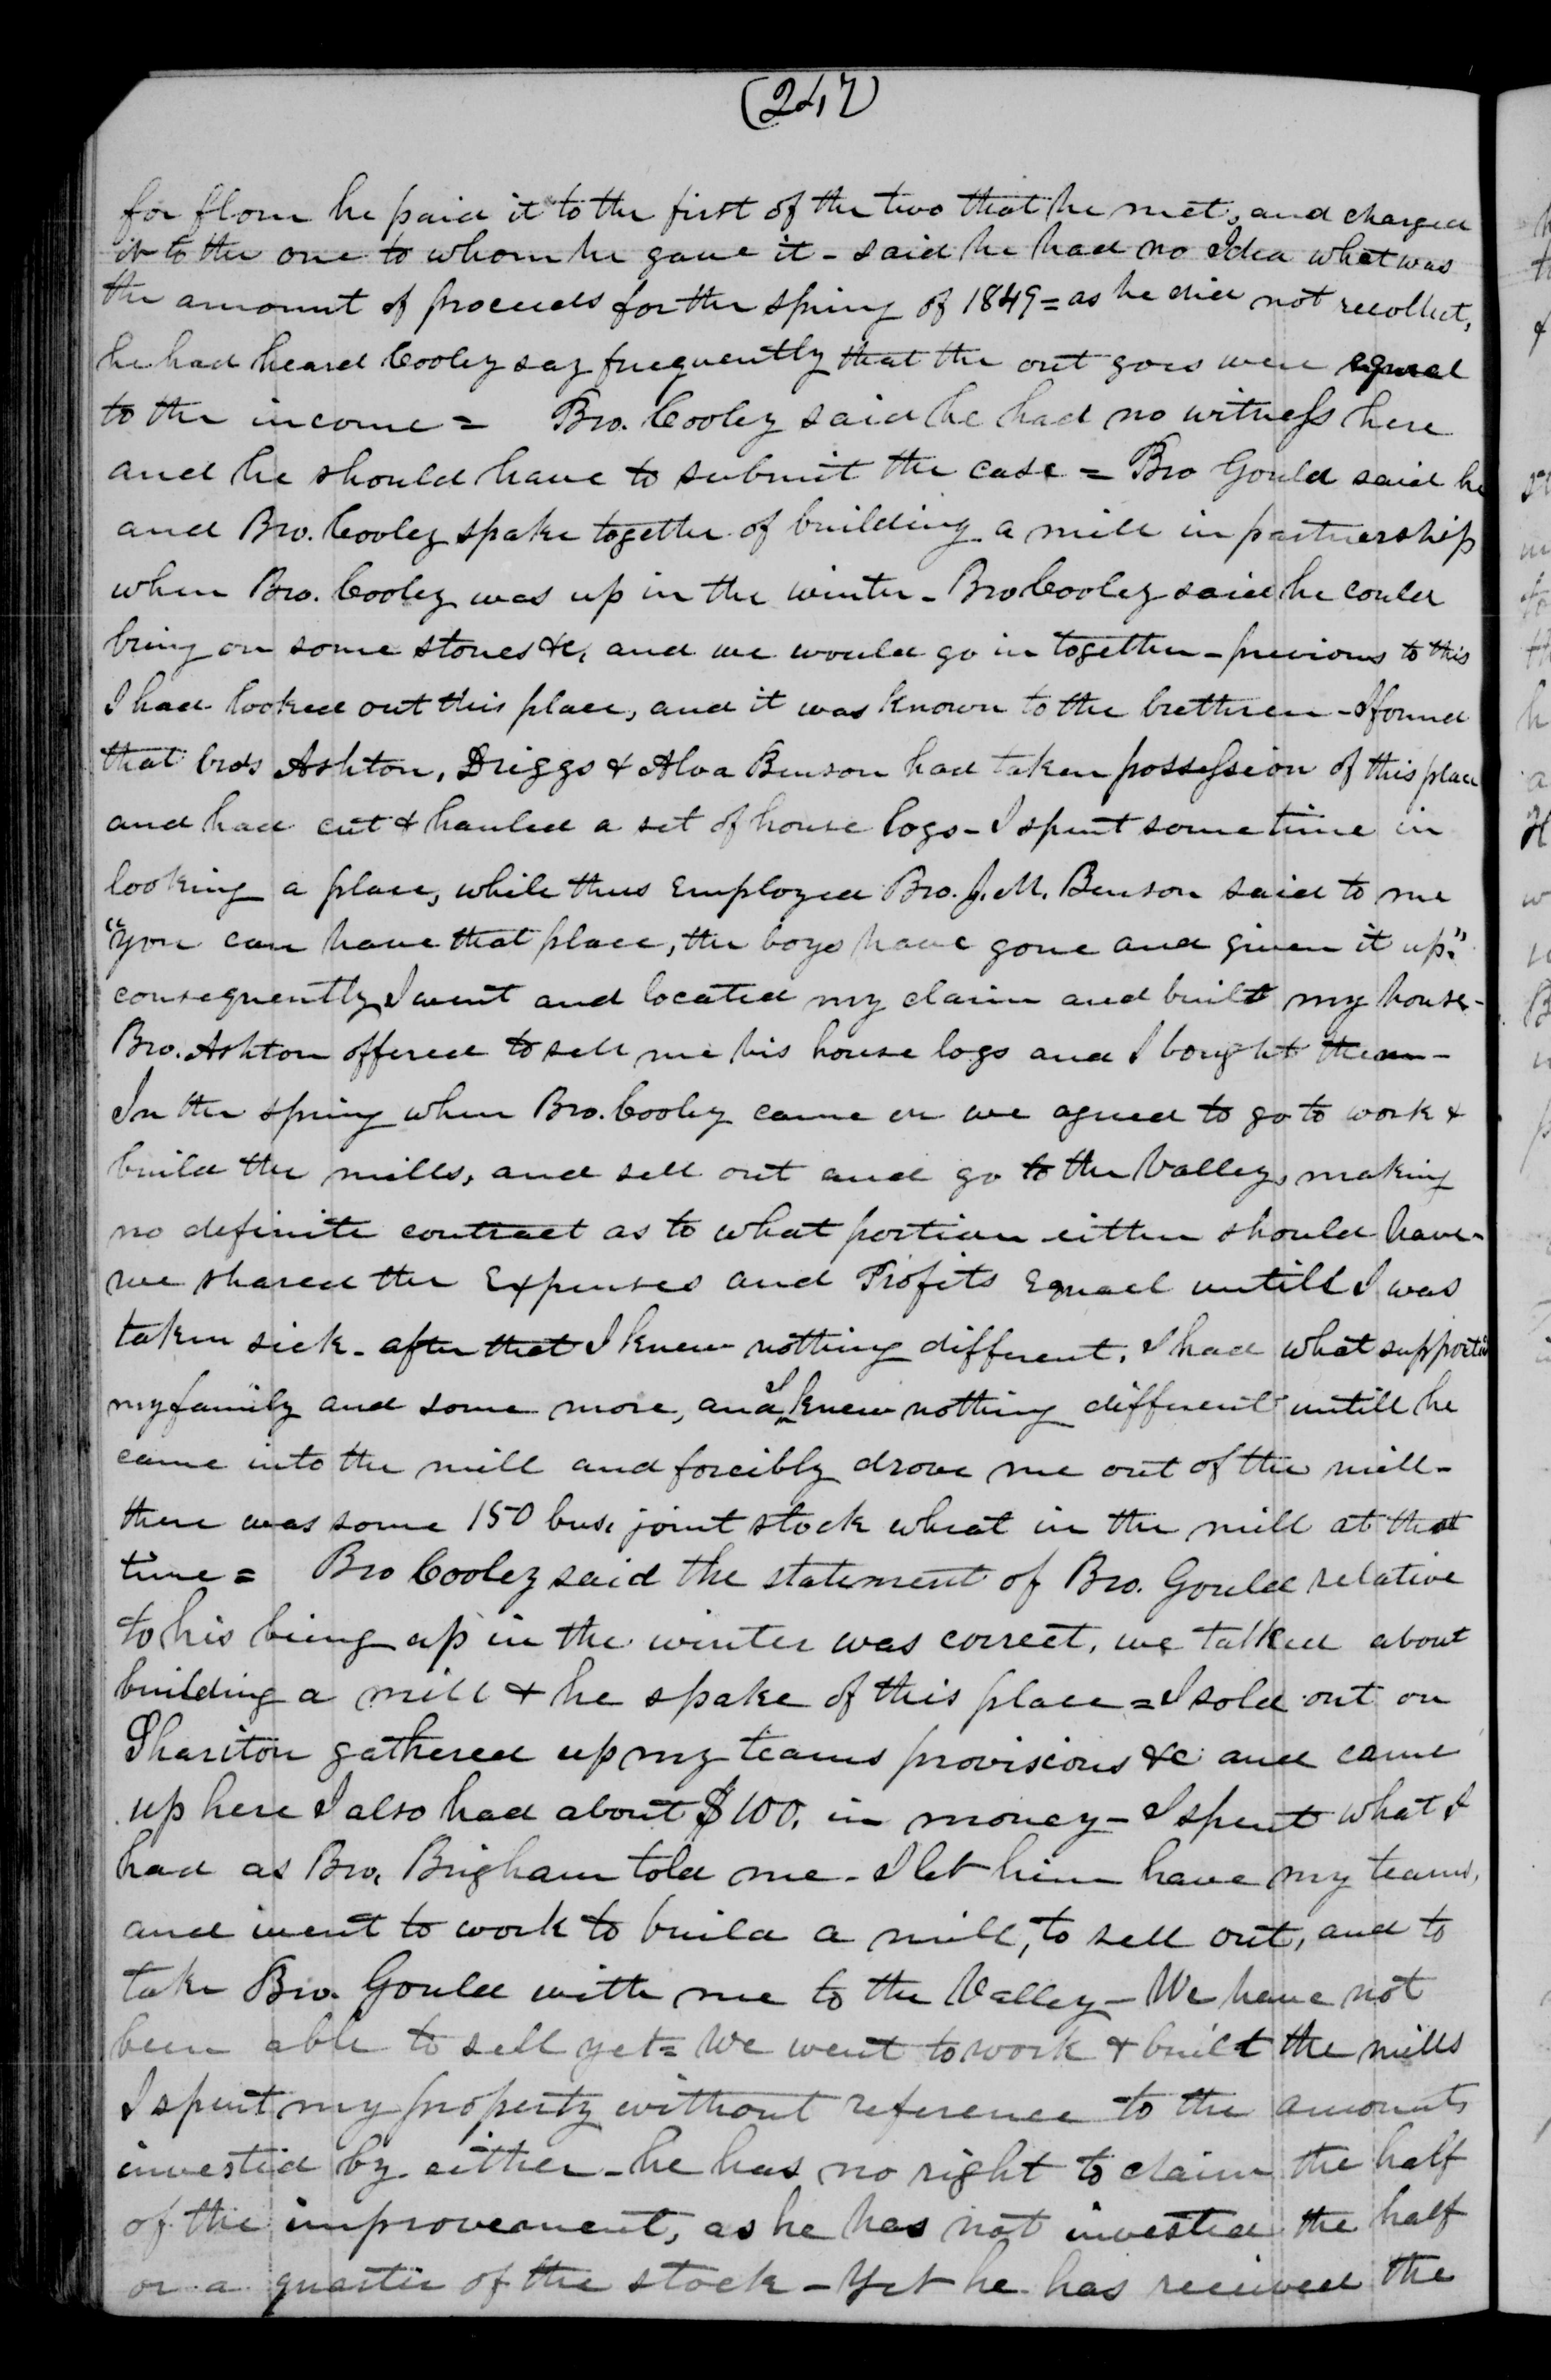 (247)
for flour he paid it to the first of the two that he met, and charged
it to the one to whom he gave it - said he had no Idea what was
the amount of proceeds for the spring of 1849 = as he did not recollect,
he had heard Cooley say frequently that the out goes were equal
to the income = Bro. Cooley said he had no witness here
and he should have to submit the case = Bro Gould said he
and Bro. Cooley spake together of building a mill in partnership
when Bro. Cooley was up in the winter - Bro Cooley said he could
bring on some stones &c, and we would go in together - previous to this
I had looked out this place, and it was known to the brethren - I found
that bros Ashton, Driggs & Alva Benson had taken possession of this place
and had cut & hauled a set of house logs - I spent some time in
looking a place, while thus Employed Bro. J. M. Benson said to me
"you can have that place, the boys have gone and given it up."
consequently I went and located my claim and built my house -
Bro. Ashton offered to sell me his house logs and I bought them -
In the spring when Bro. Cooley came on we agreed to go to work &
build the mills, and sell out and go to the Valley, making
no definite contract as to what portion either should have -
we shared the Expenses and Profits Equael untill I was
taken sick - after that I knew nothing different. I had what supported
my family and some more, and I knew nothing different untill he
came into the mill and forcibly drove me out of the mill -
there was some 150 bus. joint stock wheat in the mill at that
time = Bro Cooley said the statement of Bro. Gould relative
to his being up in the winter was correct, we talked about
building a mill & he spake of this place = I sold out on
Shariton gathered up my teams provisions &c and came
up here I also had about $100. in money - I spent what I
had as Bro. Brigham told me - I let him have my teams,
and went to work to build a mill, to sell out, and to
take Bro. Gould with me to the Valley - We have not
been able to sell yet = We went to work & built the mills
I spent my property without reference to the amounts
invested by either - he has no right to claim the half
of the improvement, as he has not invested the half
or a quarter of the stock - Yet he has received the